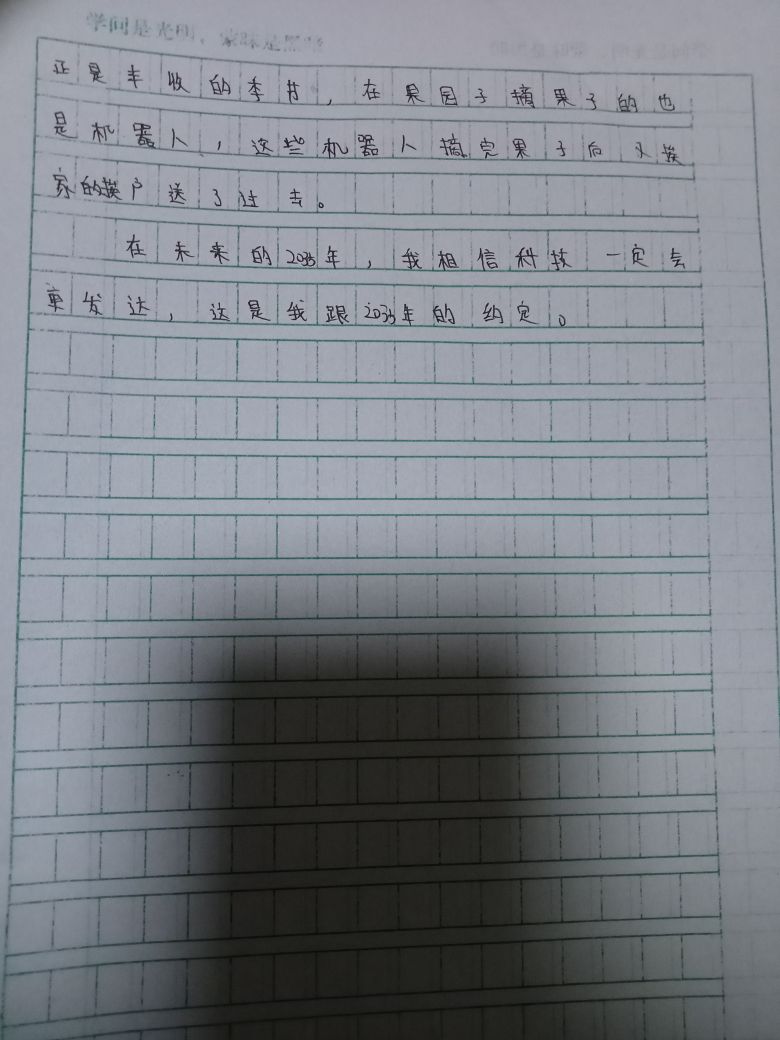 学问是光明，蒙昧是黑暗
正是丰收的季节，在果园子摘果子的也
是机器人，这些机器人摘完果子后又挨
家的挨户送了过去。
在未来的2035年，我相信科技一定会
更发达，这是我跟2035年的约定。